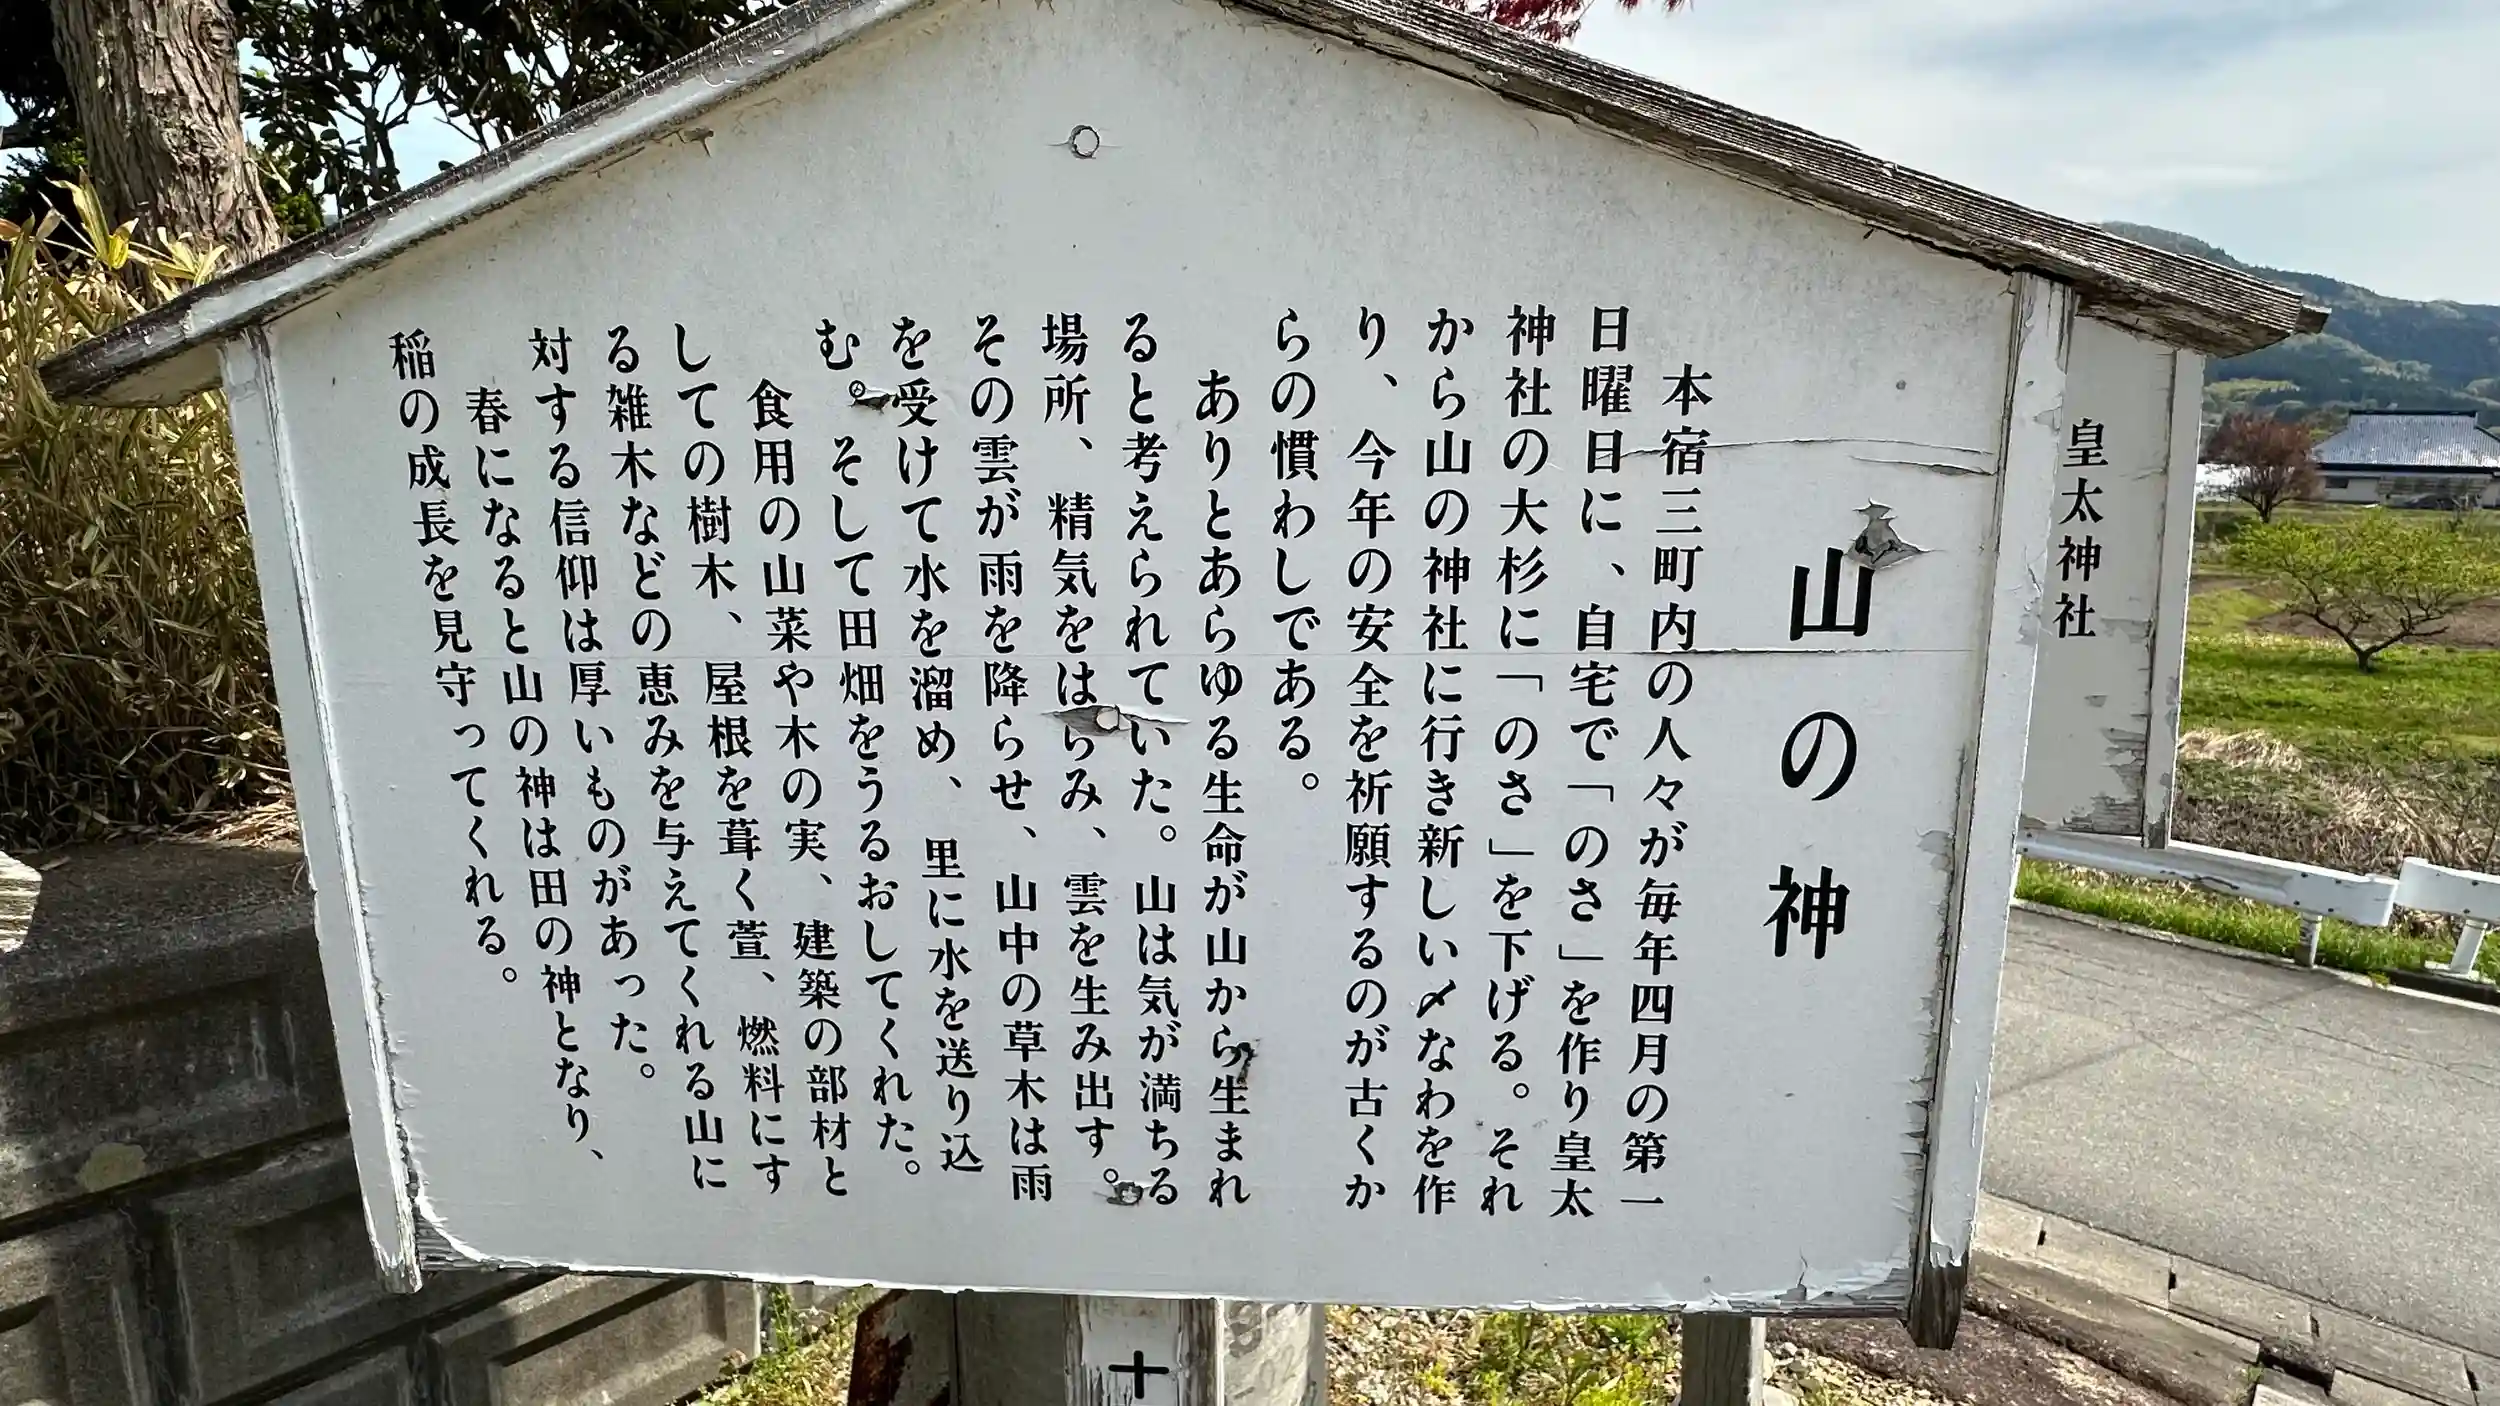 山の神
本宿三町内の人々が毎年四月の第一
日曜日に、自宅で「のさ」を作り皇太
神社の大杉に「のさ」を下げる。それ
から山の神社に行き新しい〆なわを作
り、今年の安全を祈願するのが古くか
らの慣わしである。
ありとあらゆる生命が山から生まれ
ると考えられていた。山は気が満ちる
場所、精気をはらみ、雲を生み出す。
その雲が雨を降らせ、山中の草木は雨
を受けて水を溜め、里に水を送り込
む。そして田畑をうるおしてくれた。
食用の山菜や木の実、建築の部材と
しての樹木、屋根を葺く萱、燃料にす
る雑木などの恵みを与えてくれる山に
対する信仰は厚いものがあった。
春になると山の神は田の神となり、
稲の成長を見守ってくれる。
皇太神社
十